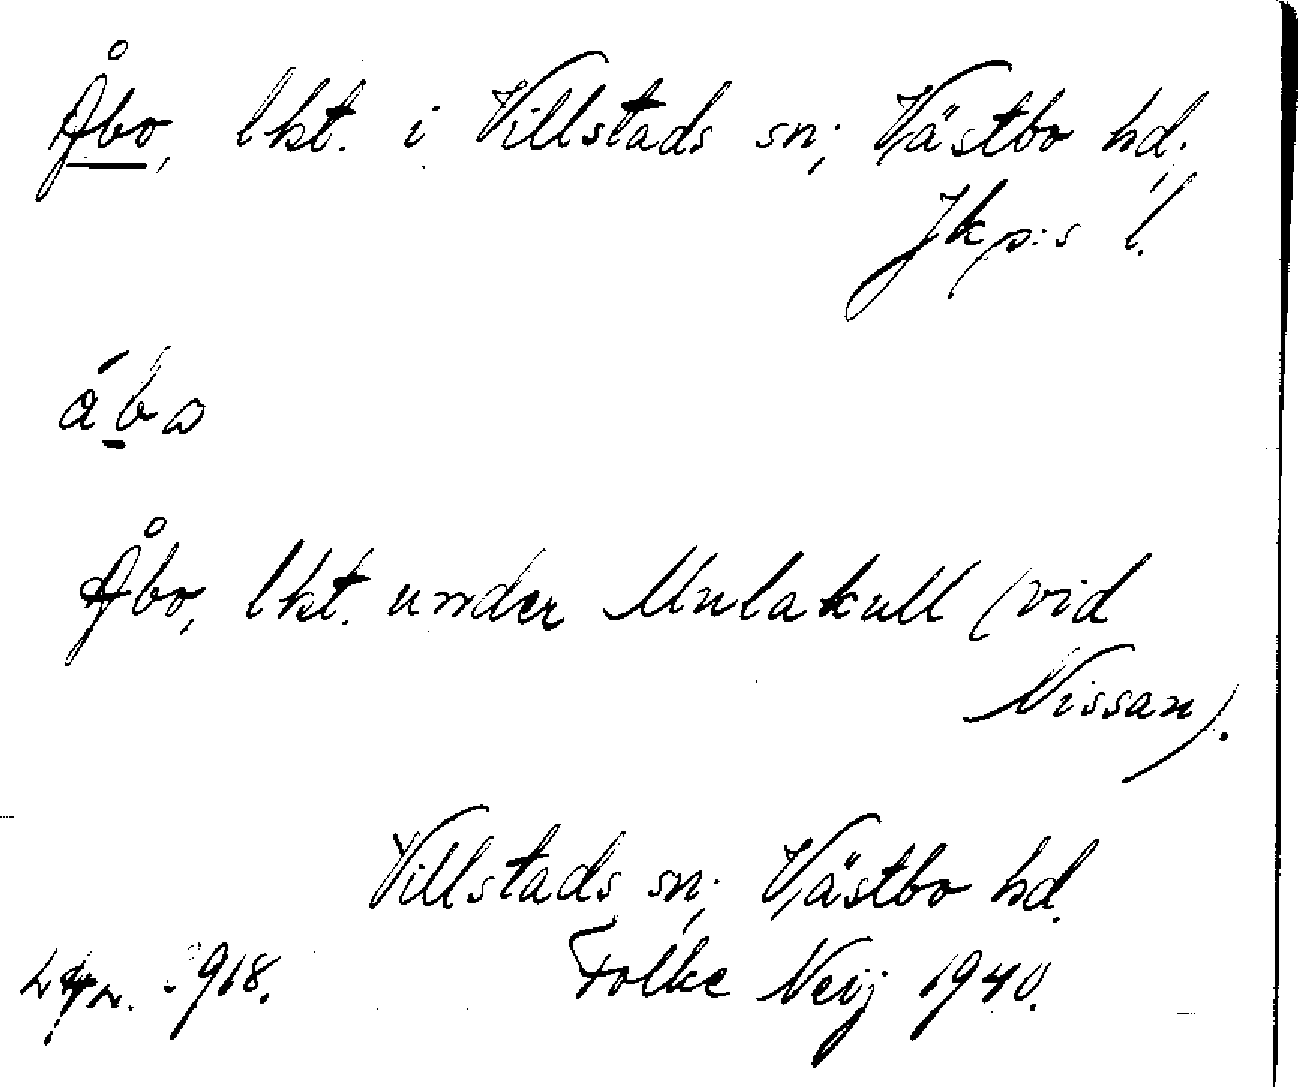 Åbo, lkt. i Villstads sn; Västbo hd;
Jkp:s l.
åbo
Åbo, lkt. under Mulakull (vid
Nissan).
Villstads sn; Västbo hd.
Folke Neij 1940.